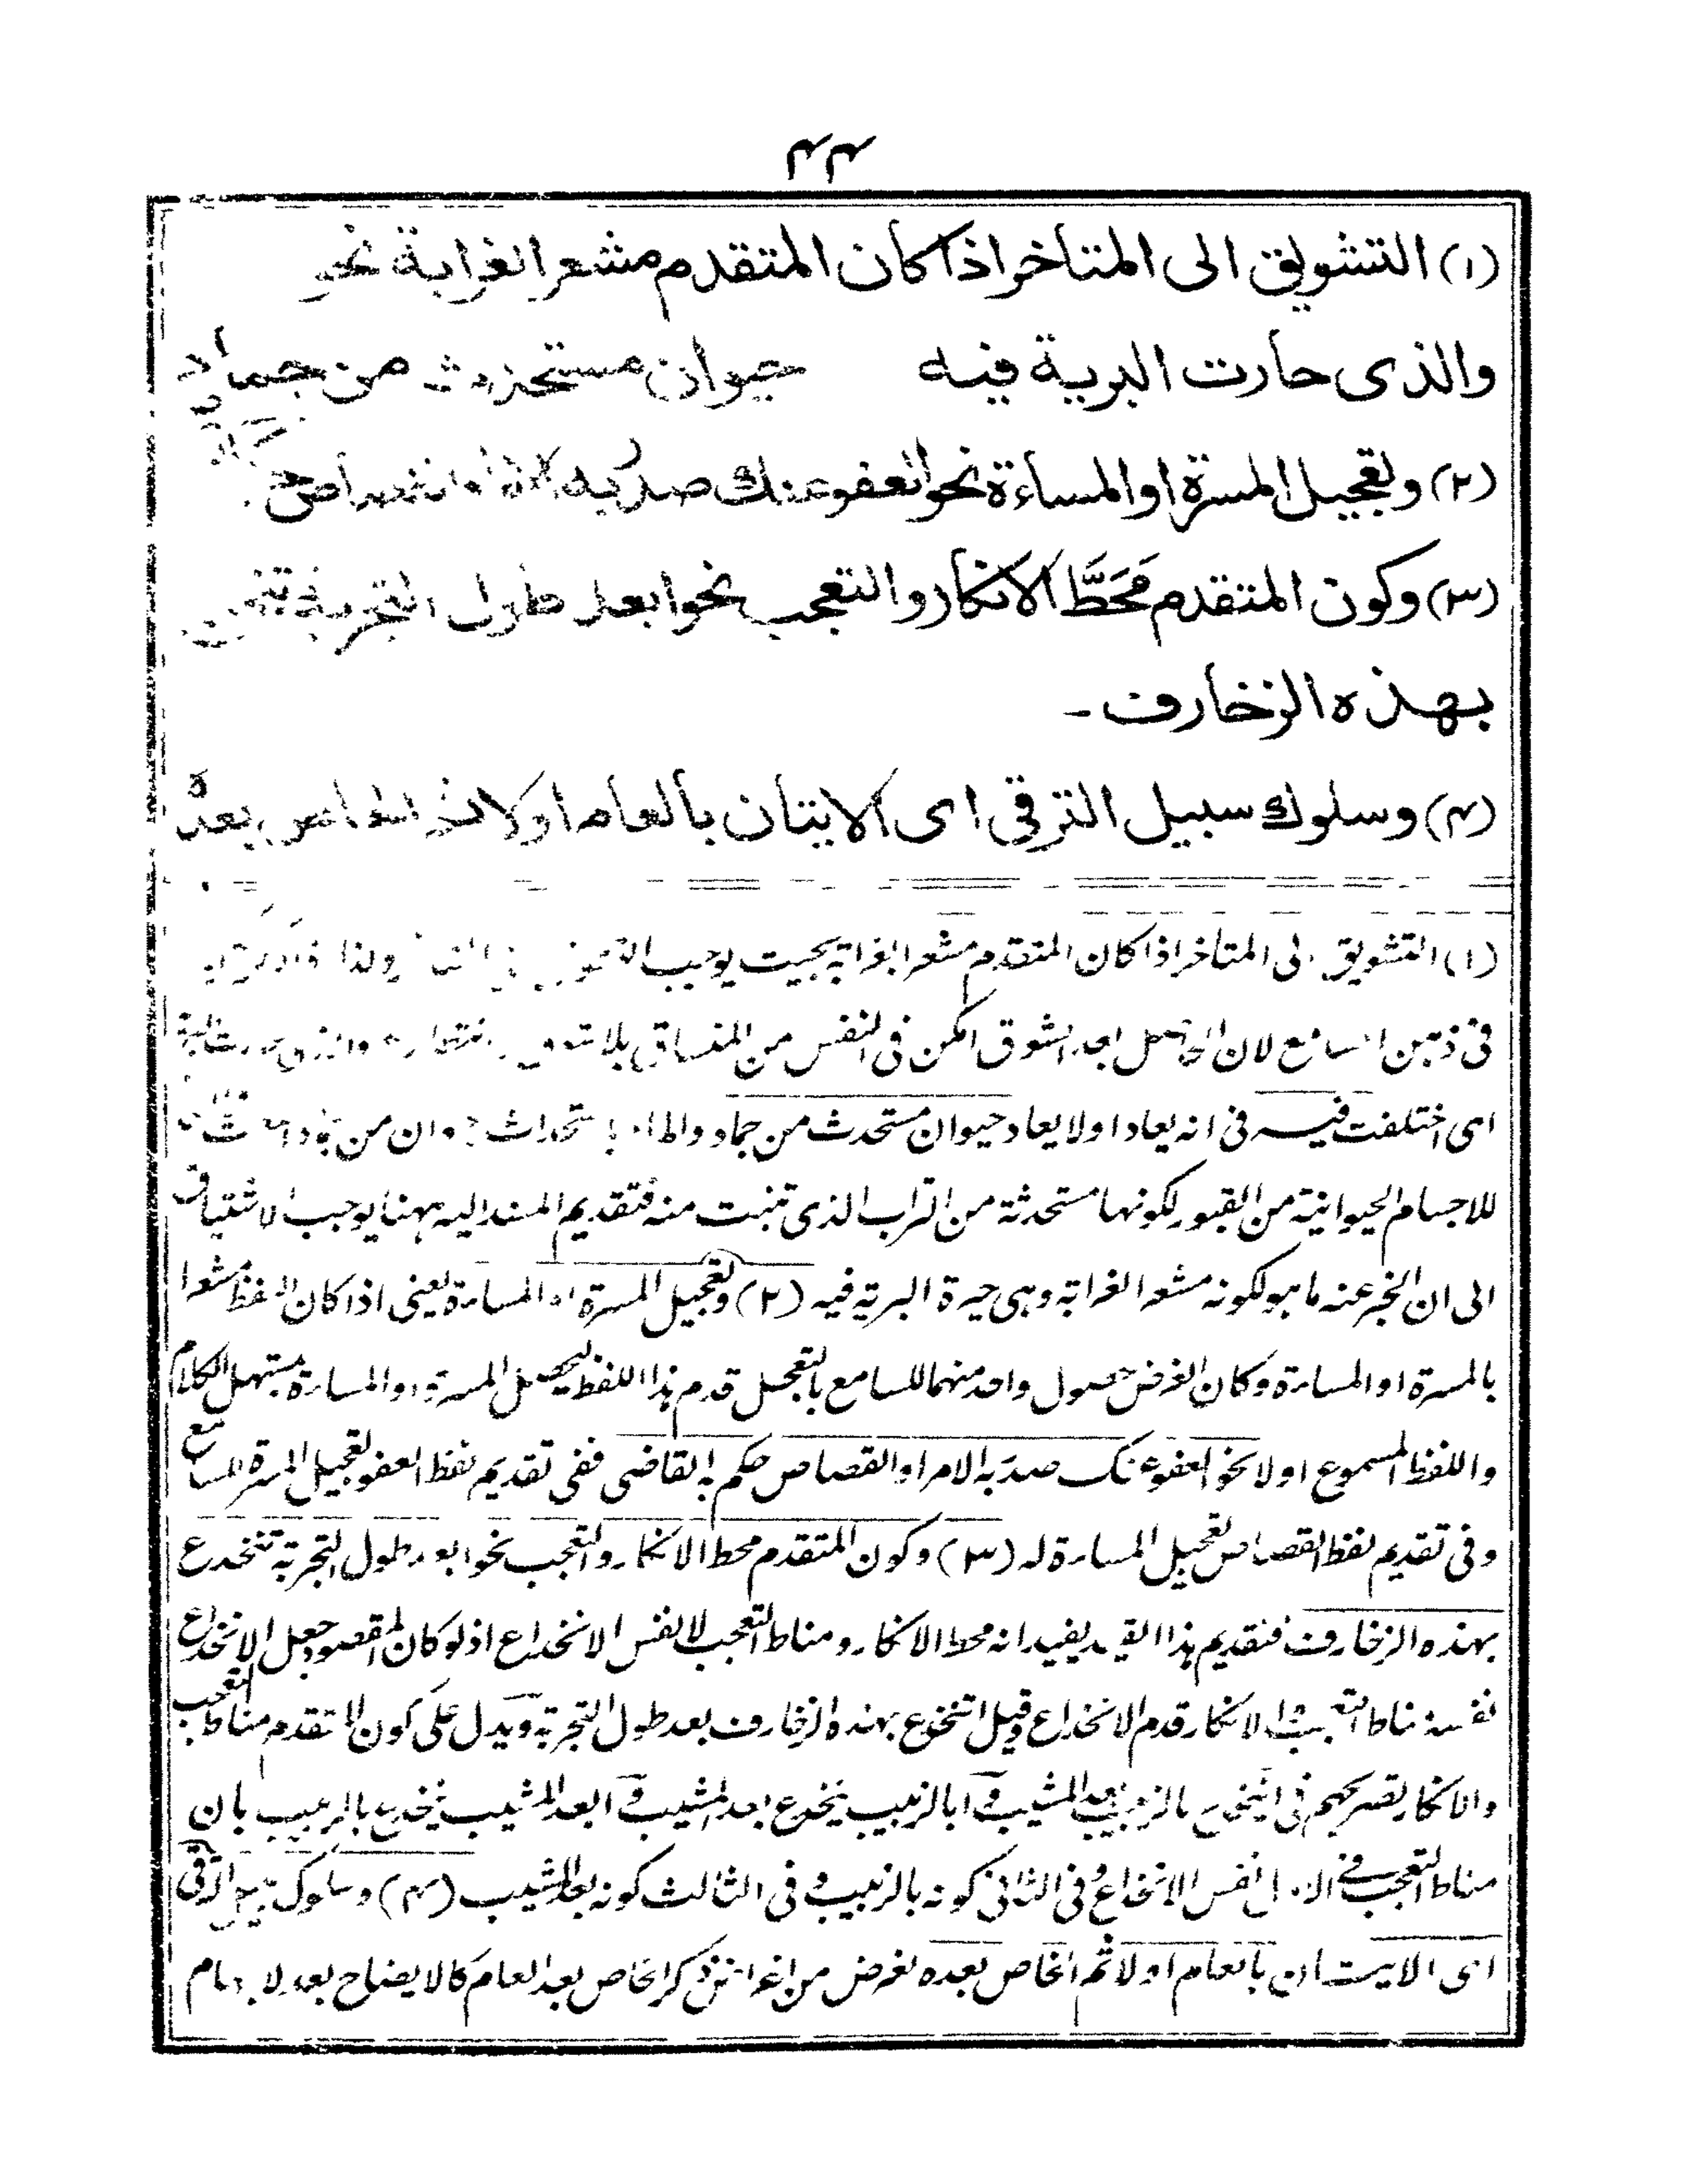 ۴۴
(۱) التشويق الى المتاخر اذا كان المتقدم مشعرا بغرابة نحو
والذى حارت البرية فيه حيوان مستحدث من جماد
(۲) وتعجيل المسرة او المساءة نحو العفو عنك صدر به
(۳) وكون المتقدم مَحَطَّ الانكار والتعجب نحو ابعد طول التجربة تنخدع
بهذه الزخارف ـ
(۴) وسلوك سبيل الترقى اى الاتيان بالعام اولا ثم الخاص بعده
(۱) التشويق الى المتاخر اذا كان المتقدم مشعرا بغرابة بحيث يوجب
فى ذهن السامع لان الحاصل بعد الشوق امكن فى النفس من المنساق بلا تعب
اى اختلفت فيه فى انه يعاد او لا يعاد حيوان مستحدث من جماد والمراد باستحداث
للاجسام الحيوانية من القبور لكونها مستحدثة من التراب الذى تنبت منه فتقديم المسند اليه ههنا يوجب الاشتياق
الى ان الخبر عنه ما هو لكونه مشعر الغرابة وهى حيرة البرية فيه (۲) وتعجيل المسرة او المساءة يعنى اذا كان اللفظ مشعرا
بالمسرة او المساءة وكان الغرض حصول واحد منهما للسامع بالتعجيل قدم هذا اللفظ ليحصل المسرة او المساءة بمستهل الكلام
واللفظ المسموع اولا نحو العفو عنك صدر به الامر او القصاص حكم به القاضى ففى تقديم لفظ العفو تعجيل المسرة للسامع
وفى تقديم لفظ القصاص تعجيل المساءة له (۳) وكون المتقدم محط الانكار والتعجب نحو ابعد طول التجربة تنخدع
بهذه الزخارف فتقديم هذا القيد يفيد انه محط الانكار ومناط التعجب لا نفس الانخداع اذ لو كان المقصود جعل الانخداع
نفسه مناط التعجب والانكار قدم الانخداع وقيل اتنخدع بهذه الزخارف بعد طول التجربة ويدل على كون المتقدم مناط التعجب
والانكار تصريحهم فى اينخدع بالزبيب بعد المشيب و ابالزبيب ينخدع بعد المشيب و ابعد المشيب ينخدع بالزبيب بان
مناط التعجب فى الاول نفس الانخداع وفى الثانى كونه بالزبيب وفى الثالث كونه بعد المشيب (۴) وسلوك سبيل الترقى
اى الاتيان بالعام اولا ثم الخاص بعده لغرض من اغراض ذكر الخاص بعد العام كالايضاح بعد الابهام